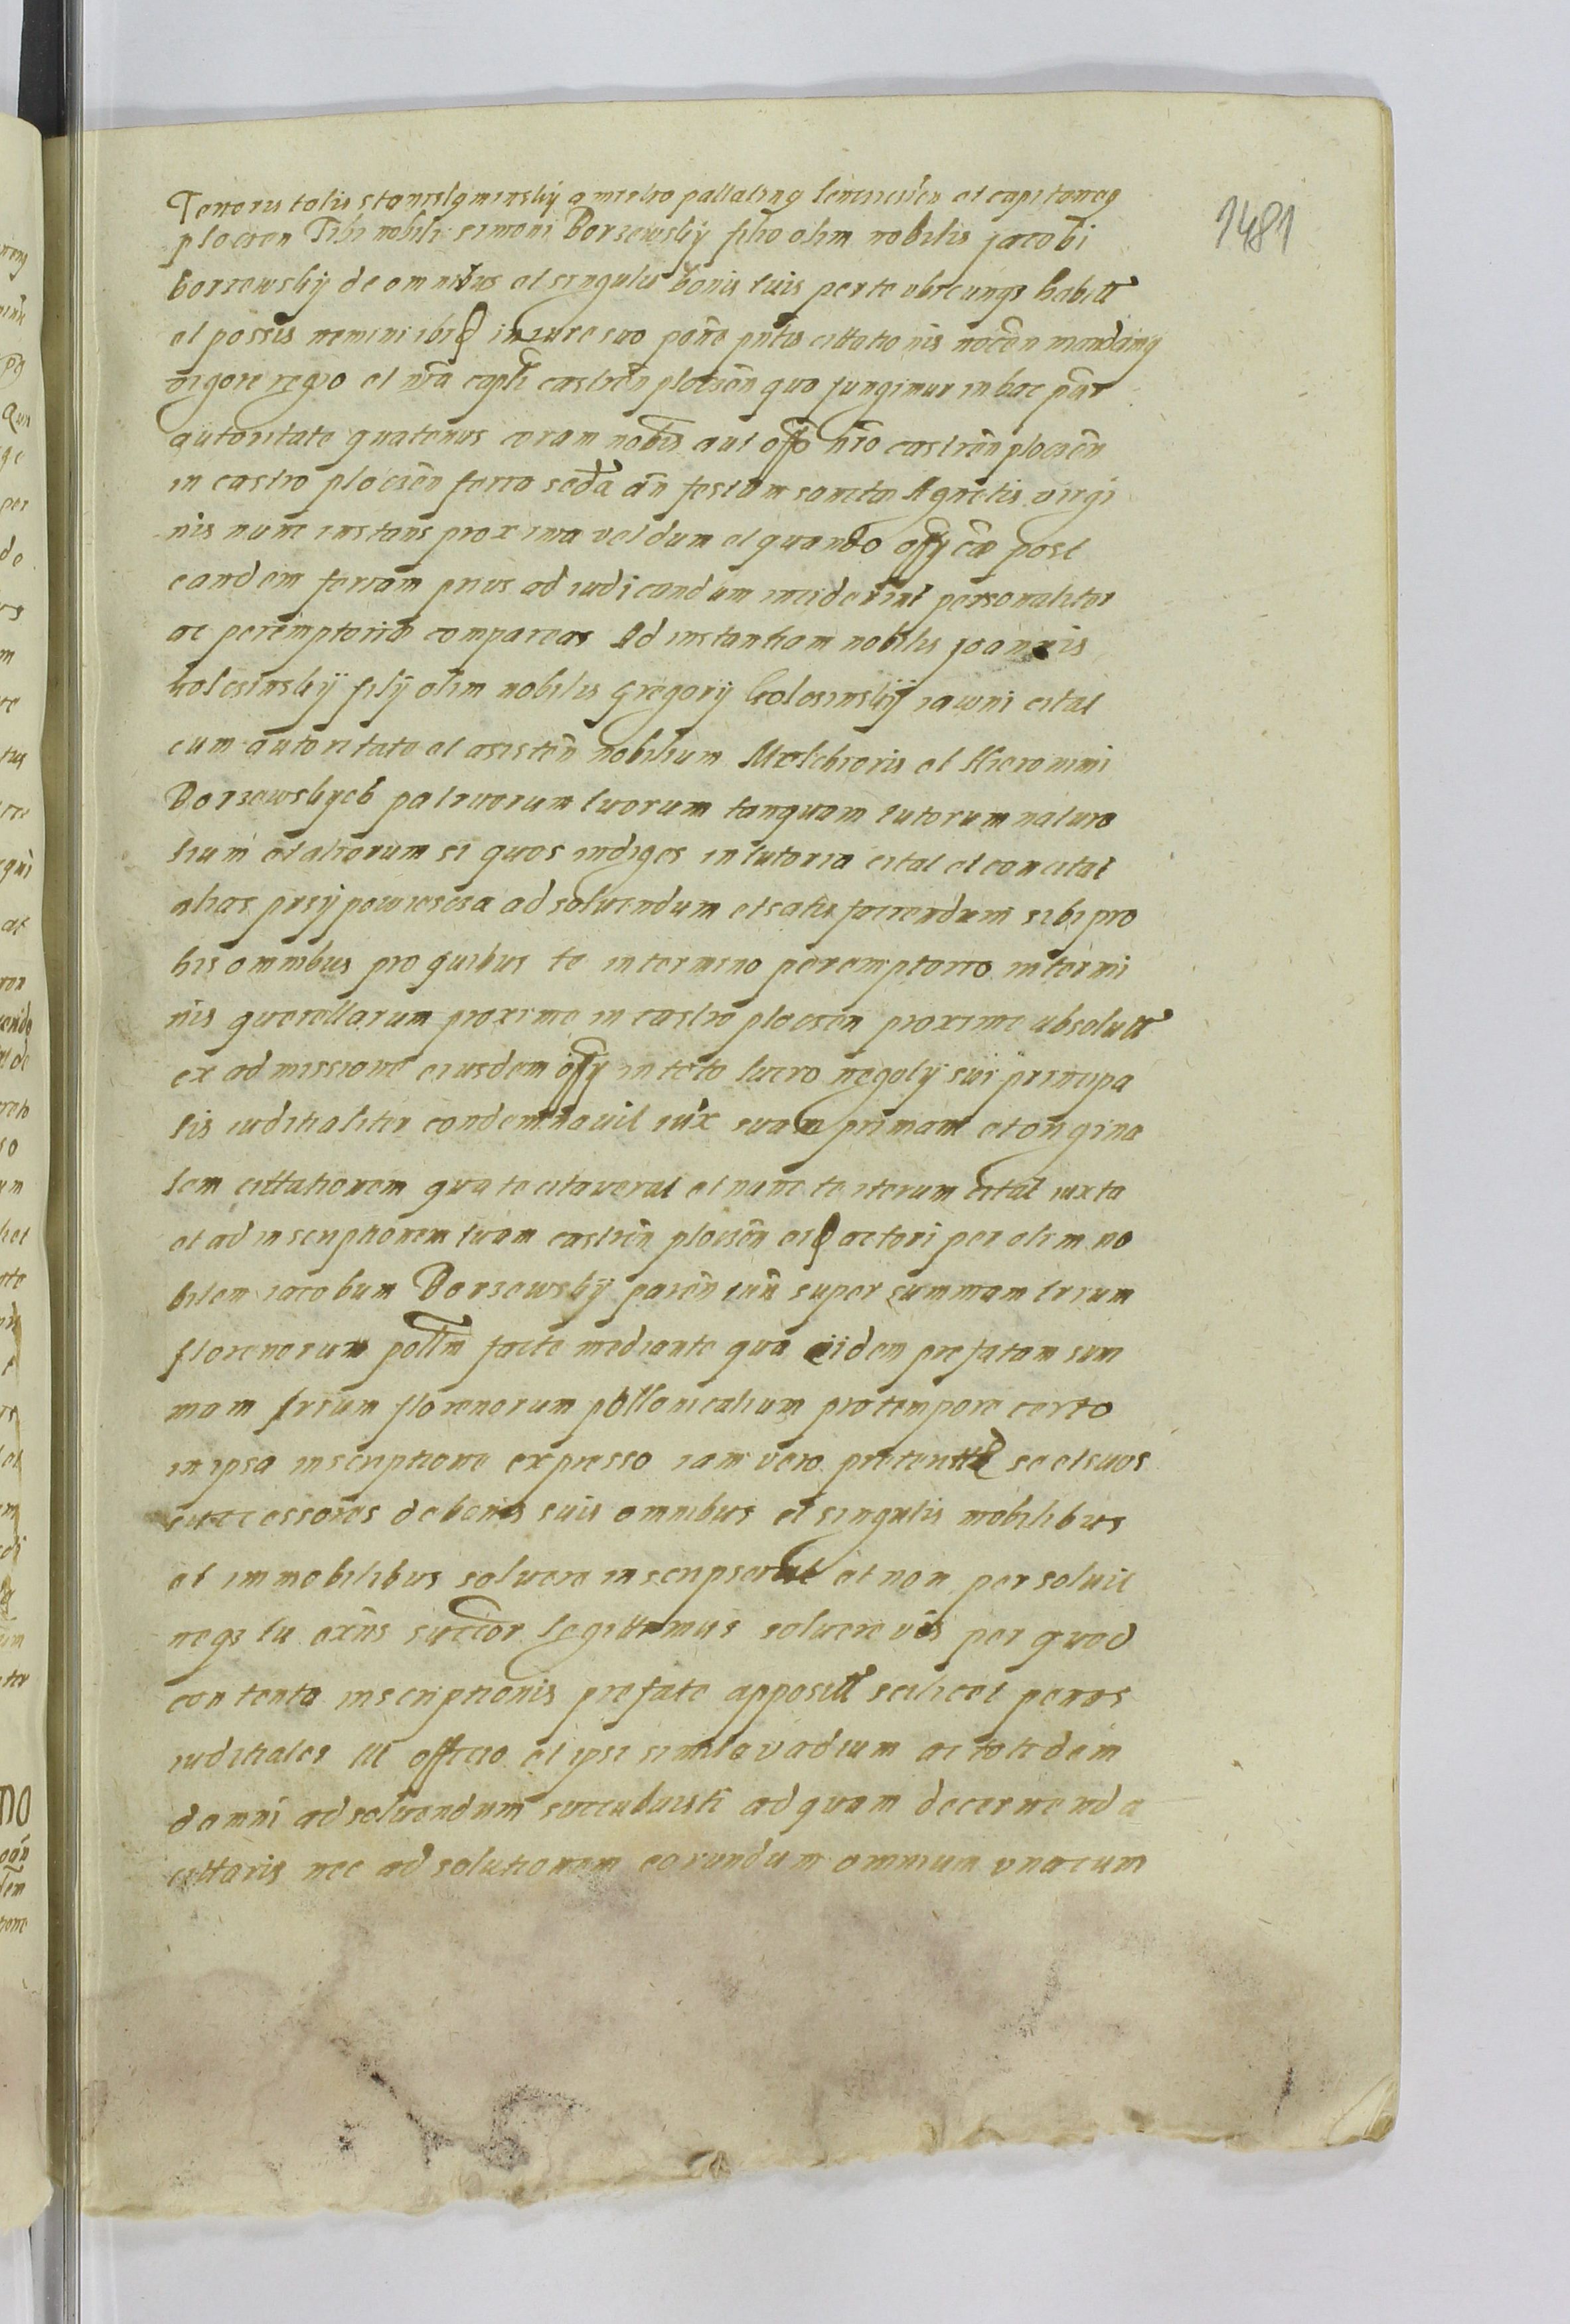 Tenoris talis Stanislg minskij a mielno pallating lenciicien et capitaneg
plocien Tibi nobili simoni Borzewskij filio olim nobilis jacobi
Borzewskij de omnibus et singulis bonis tuis per te vbicunqz habitt
et possis nemini ibid in iure suo pene pntis cittationis nocen mandamg
vigore regio et nra capli castren plocien quo fungimur in hac par
autoritate quatenus coram nobis aut offo nro castren plocien
in castro plocien feria secda an festum sanctae Agnetis virgi
nis nunc instans proxima vel dum et quando offy cae post
eandem feriam prius ad iudicandum inciderint personaliter
ac peremptoriae compareas Ad instantiam nobilis joannis
Golosinskij filij olim nobilis Gregorij Golosinskij iawni citat
cum autoritate et asisten nobilium Melchioris et Hieronimi
Borzewskych patruorum tuorum tanquam tutorum natura
lium et aliorum si quos indiges in tutoria citat et concitat
alias przypowiescza ad soluendum et satisfaciendum sibi pro
his omnibus pro quibus te in termino peremptorio in termi
nis querellarum proxime in castro plocien proxime absolutt
ex admissione eiusdem offy in toto lucro negotij sui principa
lis iuditialiter condemnauit iux suam primam et origina
lem cittationem qua te citaverat et nunc te iterum citat iuxta
et ad inscriptionem tuam castren plocien eid actori per olim no
bilem iacobum Borzewskij paren tuu super summam trium
florenorum pollm facte mediante qua eidem prefatam sum
mam trium florenorum pollonicalium pro tempore certo
in ipsa inscriptione expresso iam vero preteritt se et suos
successores de bonis suis omnibus et singulis mobilibus
et immobilibus soluere inscripserat et non persoluit
neqz tu exius succor legittimus soluere vis per quod
contenta inscriptionis prefate apposita scilicet penas
iuditiales III officio et ipsi simile vadium ac totidem
damni ad soluendum succubuisti ad quam decernenda
cittaris nec ad solutionem eorundum omnium vnacum
1481